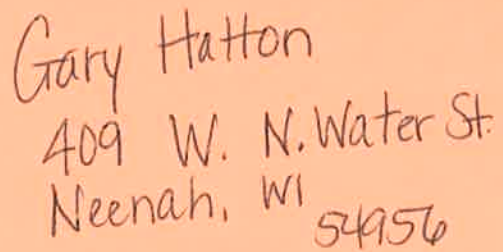 Gary Hatton
409 W. N. Water St.
Neenah, WI
54956